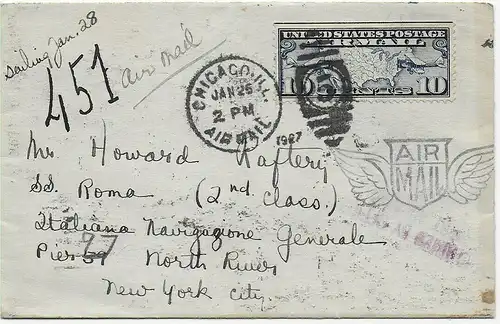 Sailing Jan. 28
451
air mail
CHICAGO, ILL.
JAN 25
2 PM
1927
AIR MAIL
UNITED STATES POSTAGE
AIR MAIL
10 CENTS 10
Mr Howard Raftery
SS. Roma (2nd class.)
Italiana Navigazione Generale
Pier 57 77 North River
New York City.
AIR
MAIL